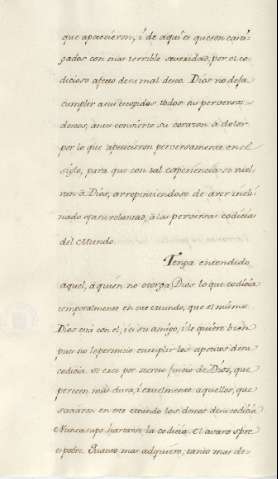 que apetecieron, i de aqui es que son casti-
gados con mas terrible severidad, por el co-
dicioso afecto de su mal deseo. Dios no deja
cumplir a sus escogidos todos sus perversos
deseos, antes convierte su corazon à dolor
por lo que apetecieron perversamente en el
siglo, para que con tal esperiencia se vuel-
van à Dios, arrepintiendose de aver incli-
nado su voluntad, à las perversas codicias
del Mundo.
Tenga entendido
aquel, à quien no otorga Dios lo que codicia
temporalmente en este Mundo, que el mismo
Dios està con el, i es su amigo, i le quiere bien
pues no le permite cumplir los apetitos de su
codicia. Es caso por secreto juicio de Dios, que
perecen mas dura, i cruelmente aquellos, que
sacaron en este Mundo los deseos de su codicia
Nunca supo hartarse la codicia. El avaro spre.
es pobre. Quanto mas adquiere, tanto mas de-